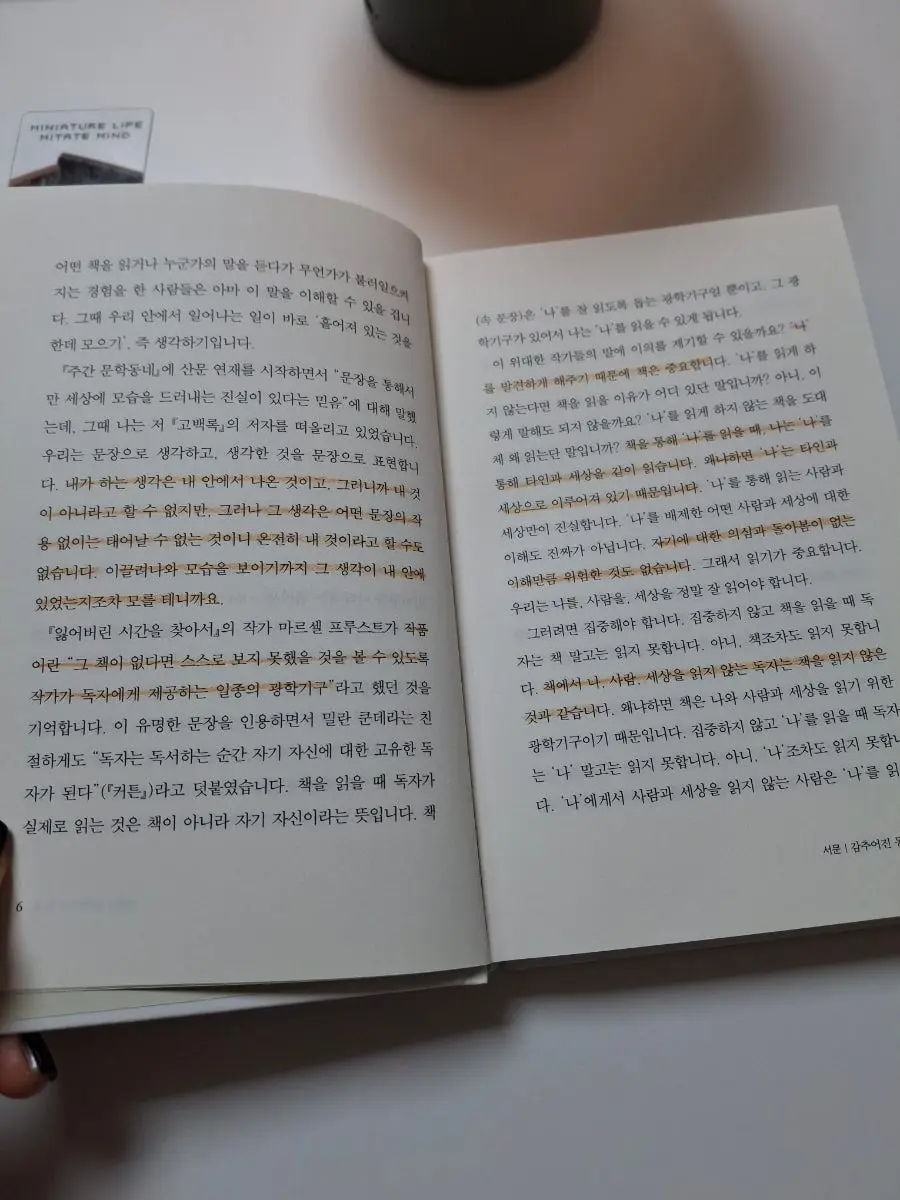 MINIATURE LIFE
MITATE MIND
어떤 책을 읽거나 누군가의 말을 듣다가 무언가가 불러일으켜
지는 경험을 한 사람들은 아마 이 말을 이해할 수 있을 겁니
다. 그때 우리 안에서 일어나는 일이 바로 '흩어져 있는 것을
한데 모으기', 즉 생각하기입니다.
『주간 문학동네』에 산문 연재를 시작하면서 "문장을 통해서
만 세상에 모습을 드러내는 진실이 있다는 믿음"에 대해 말했
는데, 그때 나는 저 『고백록』의 저자를 떠올리고 있었습니다.
우리는 문장으로 생각하고, 생각한 것을 문장으로 표현합니
다. 내가 하는 생각은 내 안에서 나온 것이고, 그러니까 내 것
이 아니라고 할 수 없지만, 그러나 그 생각은 어떤 문장의 작
용 없이는 태어날 수 없는 것이니 온전히 내 것이라고 할 수도
없습니다. 이끌려나와 모습을 보이기까지 그 생각이 내 안에
있었는지조차 모를 테니까요.
『잃어버린 시간을 찾아서』의 작가 마르셀 프루스트가 작품
이란 "그 책이 없다면 스스로 보지 못했을 것을 볼 수 있도록
작가가 독자에게 제공하는 일종의 광학기구"라고 했던 것을
기억합니다. 이 유명한 문장을 인용하면서 밀란 쿤데라는 친
절하게도 "독자는 독서하는 순간 자기 자신에 대한 고유한 독
자가 된다"(『커튼』)라고 덧붙였습니다. 책을 읽을 때 독자가
실제로 읽는 것은 책이 아니라 자기 자신이라는 뜻입니다. 책
6
(속 문장)은 '나'를 잘 읽도록 돕는 광학기구일 뿐이고, 그 광
학기구가 있어서 나는 '나'를 읽을 수 있게 됩니다.
이 위대한 작가들의 말에 이의를 제기할 수 있을까요? '나'
를 발견하게 해주기 때문에 책은 중요합니다. '나'를 읽게 하
지 않는다면 책을 읽을 이유가 어디 있단 말입니까? 아니, 이
렇게 말해도 되지 않을까요? '나'를 읽게 하지 않는 책을 도대
체 왜 읽는단 말입니까? 책을 통해 '나'를 읽을 때, 나는 '나'를
통해 타인과 세상을 같이 읽습니다. 왜냐하면 '나'는 타인과
세상으로 이루어져 있기 때문입니다. '나'를 통해 읽는 사람과
세상만이 진실합니다. '나'를 배제한 어떤 사람과 세상에 대한
이해도 진짜가 아닙니다. 자기에 대한 의심과 돌아봄이 없는
이해만큼 위험한 것도 없습니다. 그래서 읽기가 중요합니다.
우리는 나를, 사람을, 세상을 정말 잘 읽어야 합니다.
그러려면 집중해야 합니다. 집중하지 않고 책을 읽을 때 독
자는 책 말고는 읽지 못합니다. 아니, 책조차도 읽지 못합니
다. 책에서 나, 사람, 세상을 읽지 않는 독자는 책을 읽지 않은
것과 같습니다. 왜냐하면 책은 나와 사람과 세상을 읽기 위한
광학기구이기 때문입니다. 집중하지 않고 '나'를 읽을 때 독자
는 '나' 말고는 읽지 못합니다. 아니, '나'조차도 읽지 못합니
다. '나'에게서 사람과 세상을 읽지 않는 사람은 '나'를 읽
서문 | 감추어진